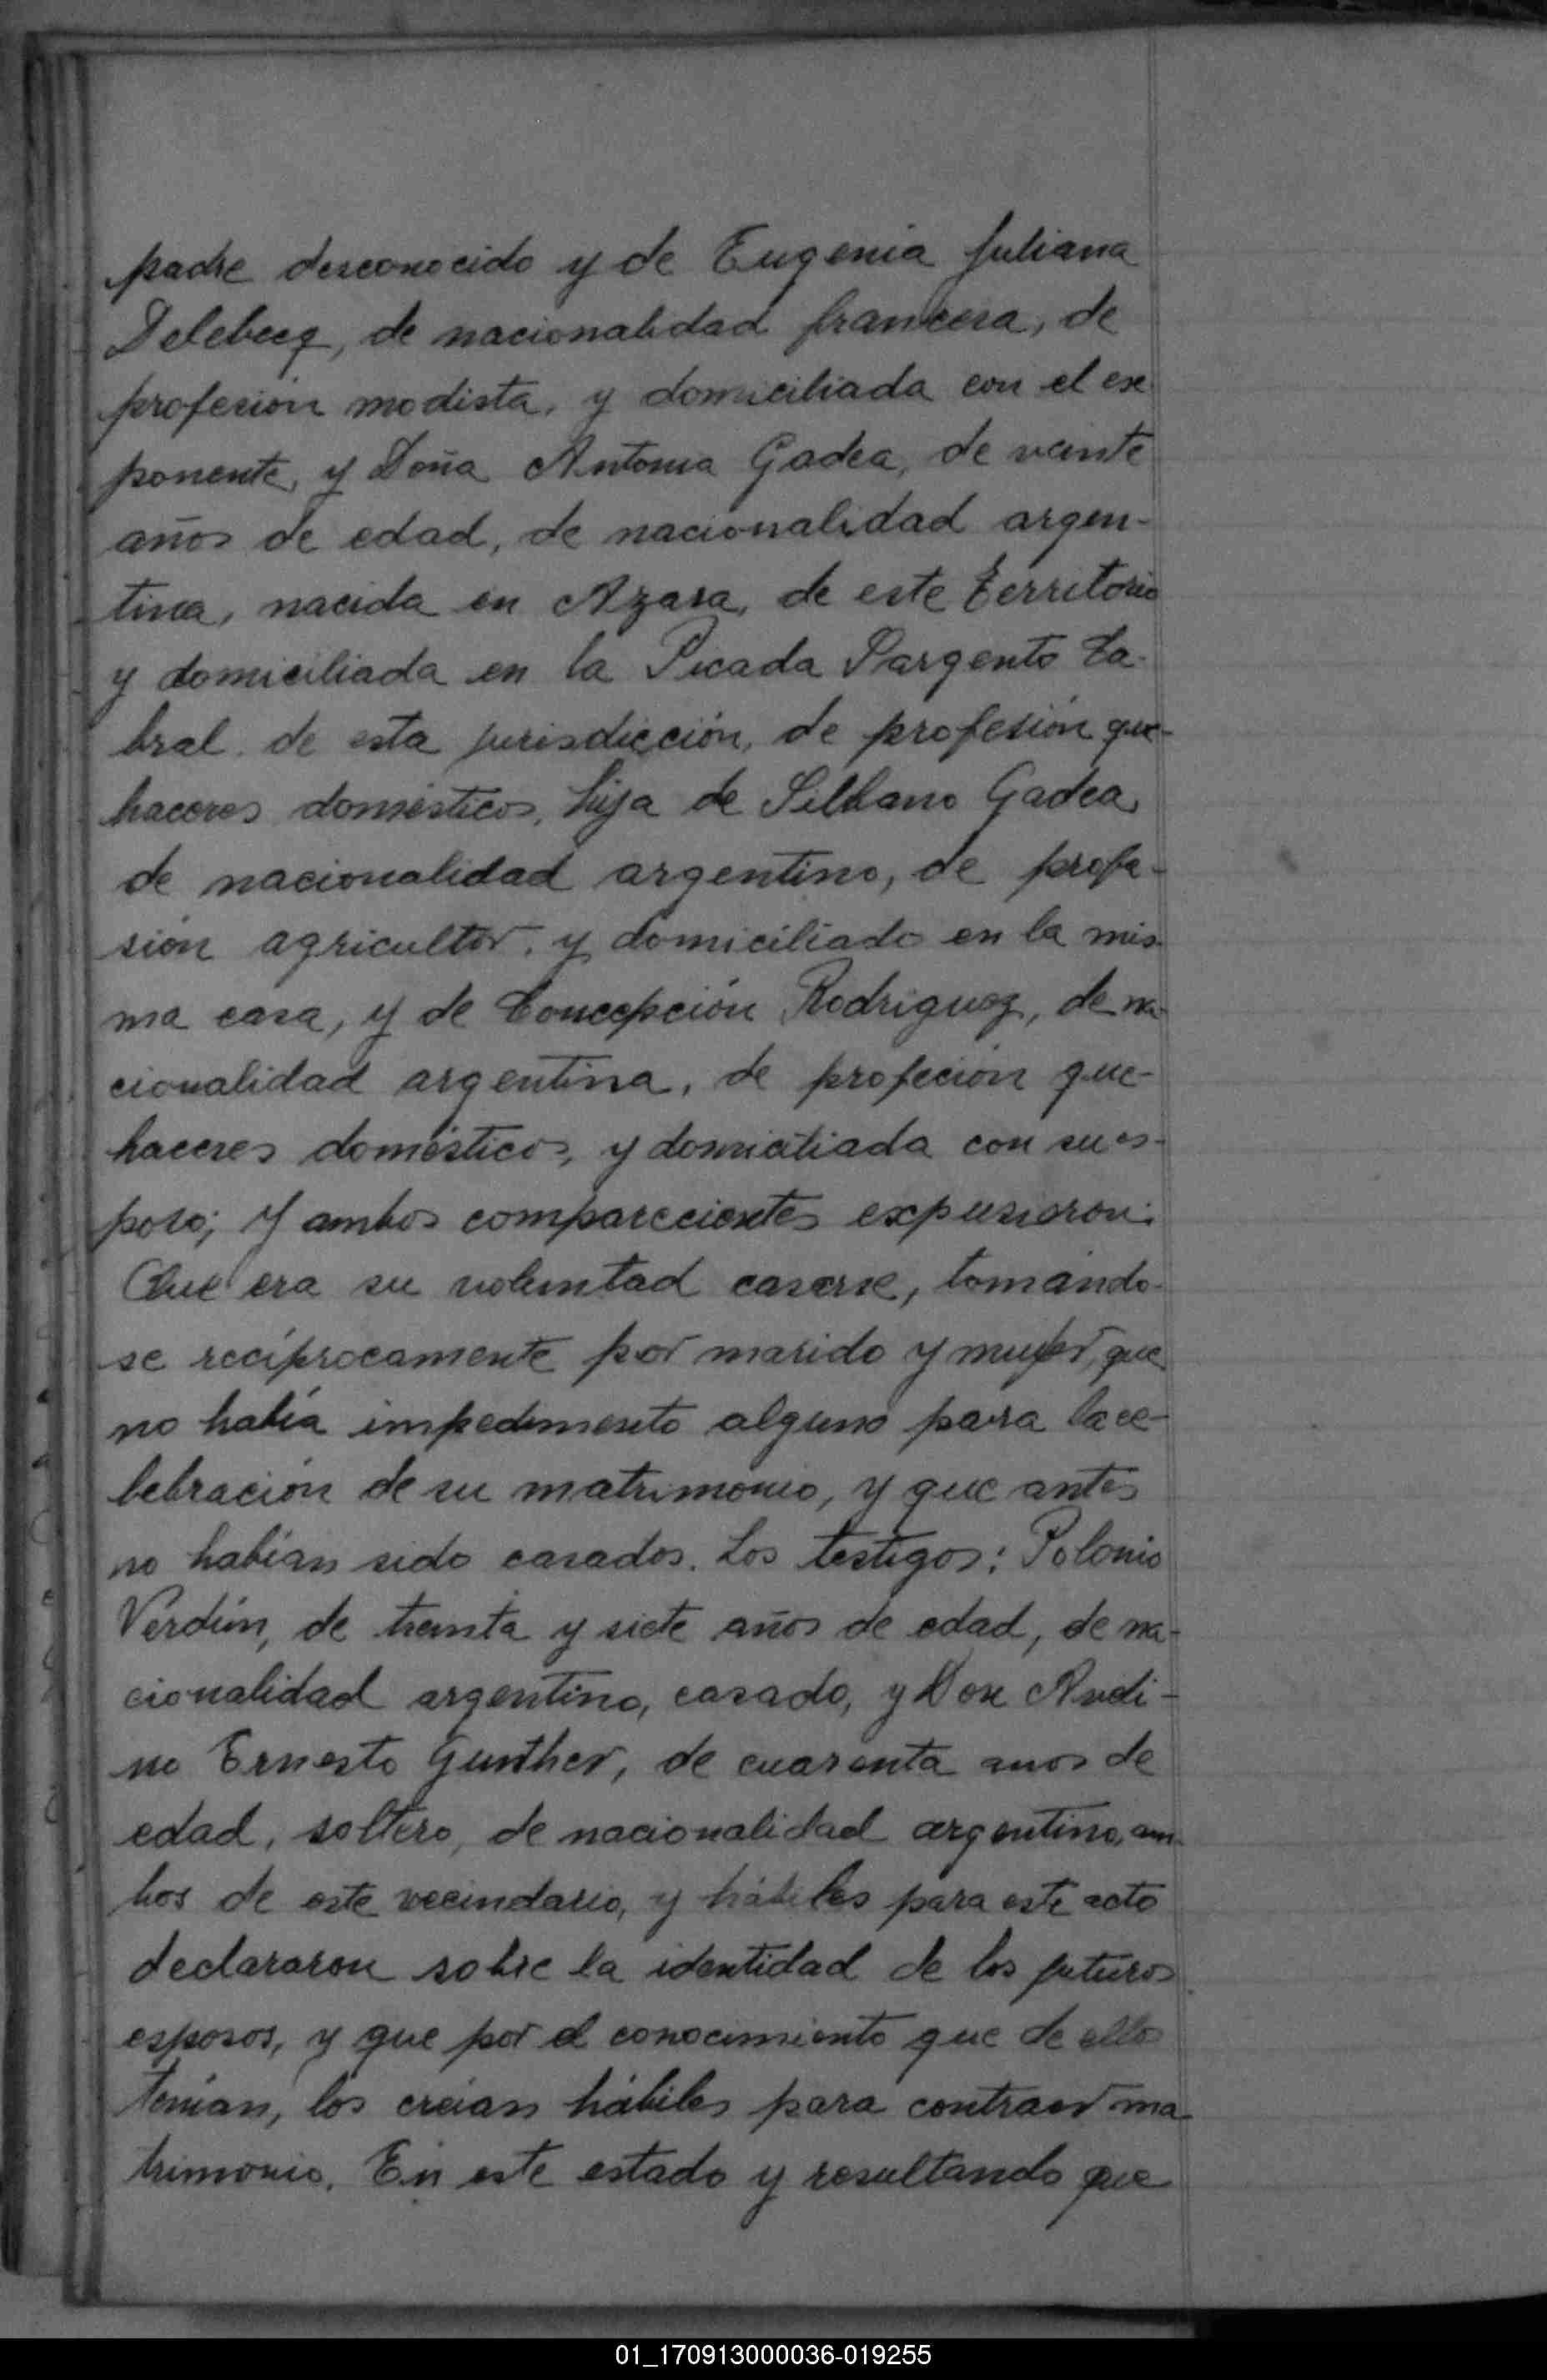 padre desconocido y de Eugenia Juliana
Delebecq, de nacionalidad francesa, de
profesión modista, y domiciliada con el ex
ponente, y Doña Antonia Gadea, de veinte
años de edad, de nacionalidad argen-
tina, nacida en Azara, de este territorio
y domiciliada en la Picada Sargento Ca-
bral de esta jurisdicción, de profesión que-
haceres domésticos, hija de Silbano Gadea,
de nacionalidad argentino, de profe-
sión agricultor, y domiciliado en la mis-
ma casa, y de Concepción Rodriguez, de na-
cionalidad argentina, de profeción que-
haceres domésticos, y domiciliada con su es-
poso; Y ambos comparecientes expusieron:
Que era su voluntad casarse, tomándo-
se recíprocamente por marido y mujer, que
no había impedimento alguno para la ce-
lebración de su matrimonio, y que antes
no habían sido casados. Los testigos: Polonio
Verdún, de treinta y siete años de edad, de na-
cionalidad argentino, casado, y Don Avdi-
no Ernesto Gunther, de cuarenta anos de
edad, soltero, de nacionalidad argentino, am-
bos de este vecindario, y hábiles para este acto
declararon sobre la identidad de los futuros
esposos, y que por el conocimiento que de ellos
tenían, los creían hábiles para contraer ma-
trimonio. En este estado y resultando que
01_170913000036-019255